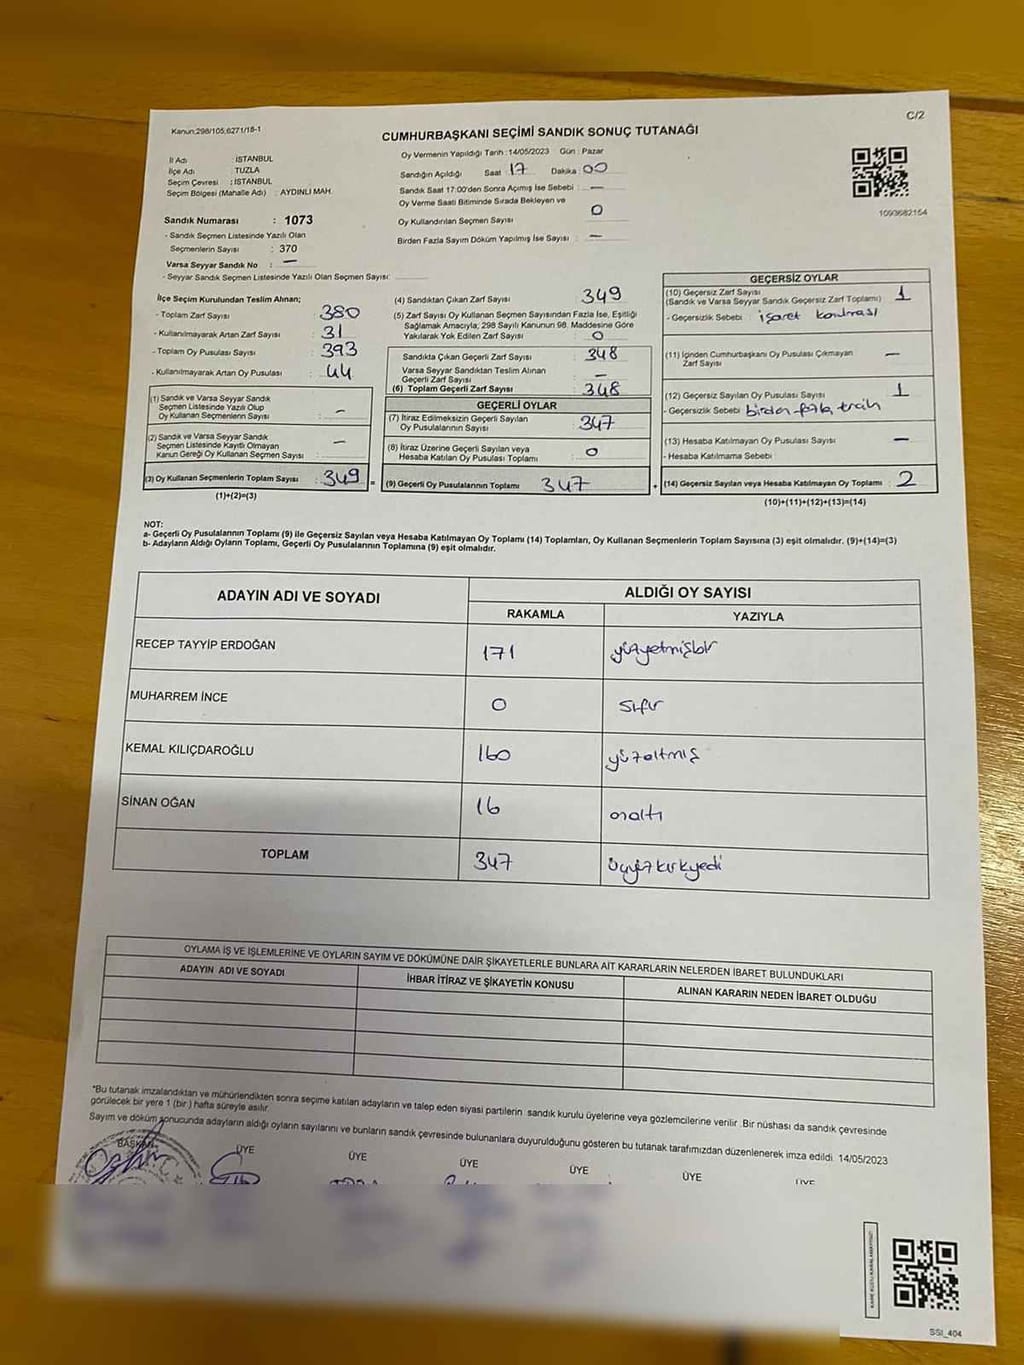 C/2
Kanun;298/105;6271/18-1
CUMHURBAŞKANI SEÇİMİ SANDIK SONUÇ TUTANAĞI
İl Adı : İSTANBUL
İlçe Adı : TUZLA
Seçim Çevresi : İSTANBUL
Seçim Bölgesi (Mahalle Adı) : AYDINLI MAH.
Oy Vermenin Yapıldığı Tarih :14/05/2023 Gün : Pazar
Sandığın Açıldığı Saat 17 Dakika : 00
Sandık Saat 17:00'den Sonra Açımış İse Sebebi : —
Oy Verme Saati Bitiminde Sırada Bekleyen ve
Oy Kullandırılan Seçmen Sayısı 0
Birden Fazla Sayım Döküm Yapılmış İse Sayısı : —
1093682154
Sandık Numarası : 1073
- Sandık Seçmen Listesinde Yazılı Olan
Seçmenlerin Sayısı : 370
Varsa Seyyar Sandık No : —
- Seyyar Sandık Seçmen Listesinde Yazılı Olan Seçmen Sayısı:
İlçe Seçim Kurulundan Teslim Alınan;
- Toplam Zarf Sayısı : 380
- Kullanılmayarak Artan Zarf Sayısı : 31
- Toplam Oy Pusulası Sayısı : 393
- Kullanılmayarak Artan Oy Pusulası : 44
(1) Sandık ve Varsa Seyyar Sandık
Seçmen Listesinde Yazılı Olup
Oy Kullanan Seçmenlerin Sayısı : —
(2) Sandık ve Varsa Seyyar Sandık
Seçmen Listesinde Kayıtlı Olmayan
Kanun Gereği Oy Kullanan Seçmen Sayısı : —
(3) Oy Kullanan Seçmenlerin Toplam Sayısı : 349 =
(1)+(2)=(3)
(4) Sandıktan Çıkan Zarf Sayısı 349
(5) Zarf Sayısı Oy Kullanan Seçmen Sayısından Fazla İse, Eşitliği
Sağlamak Amacıyla; 298 Sayılı Kanunun 98. Maddesine Göre
Yakılarak Yok Edilen Zarf Sayısı : 0
Sandıkta Çıkan Geçerli Zarf Sayısı : 348
Varsa Seyyar Sandıktan Teslim Alınan
Geçerli Zarf Sayısı : —
(6) Toplam Geçerli Zarf Sayısı : 348
GEÇERLİ OYLAR
(7) İtiraz Edilmeksizin Geçerli Sayılan
Oy Pusulalarının Sayısı : 347
(8) İtiraz Üzerine Geçerli Sayılan veya
Hesaba Katılan Oy Pusulası Toplamı : 0
(9) Geçerli Oy Pusulalarının Toplamı 347 +
GEÇERSİZ OYLAR
(10) Geçersiz Zarf Sayısı
(Sandık ve Varsa Seyyar Sandık Geçersiz Zarf Toplamı) : 1
- Geçersizlik Sebebi : işaret konması
(11) İçinden Cumhurbaşkanı Oy Pusulası Çıkmayan
Zarf Sayısı —
(12) Geçersiz Sayılan Oy Pusulası Sayısı : 1
- Geçersizlik Sebebi birden fazla tercih
(13) Hesaba Katılmayan Oy Pusulası Sayısı : —
- Hesaba Katılmama Sebebi
(14) Geçersiz Sayılan veya Hesaba Katılmayan Oy Toplamı : 2
(10)+(11)+(12)+(13)=(14)
NOT:
a- Geçerli Oy Pusulalarının Toplamı (9) ile Geçersiz Sayılan veya Hesaba Katılmayan Oy Toplamı (14) Toplamları, Oy Kullanan Seçmenlerin Toplam Sayısına (3) eşit olmalıdır. (9)+(14)=(3)
b- Adayların Aldığı Oyların Toplamı, Geçerli Oy Pusulalarının Toplamına (9) eşit olmalıdır.
ADAYIN ADI VE SOYADI
ALDIĞI OY SAYISI
RAKAMLA YAZIYLA
RECEP TAYYİP ERDOĞAN 171 yüzyetmişbir
MUHARREM İNCE 0 sıfır
KEMAL KILIÇDAROĞLU 160 yüzaltmış
SİNAN OĞAN 16 onaltı
TOPLAM 347 üçyüzkırkyedi
OYLAMA İŞ VE İŞLEMLERİNE VE OYLARIN SAYIM VE DÖKÜMÜNE DAİR ŞİKAYETLERLE BUNLARA AİT KARARLARIN NELERDEN İBARET BULUNDUKLARI
ADAYIN ADI VE SOYADI İHBAR İTİRAZ VE ŞİKAYETİN KONUSU ALINAN KARARIN NEDEN İBARET OLDUĞU
*Bu tutanak imzalandıktan ve mühürlendikten sonra seçime katılan adayların ve talep eden siyasi partilerin sandık kurulu üyelerine veya gözlemcilerine verilir .Bir nüshası da sandık çevresinde
görülecek bir yere 1 (bir ) hafta süreyle asılır.
Sayım ve döküm sonucunda adayların aldığı oyların sayılarını ve bunların sandık çevresinde bulunanlara duyurulduğunu gösteren bu tutanak tarafımızdan düzenlenerek imza edildi. 14/05/2023
BAŞKAN ÜYE ÜYE ÜYE ÜYE ÜYE ÜYE
SSI_404